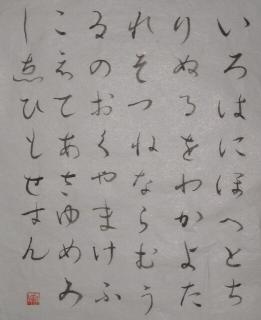 いろはにほへとち
りぬるをわかよた
れそつねならむう
ゐのおくやまけふ
こえてあさゆめみ
しゑひもせすん